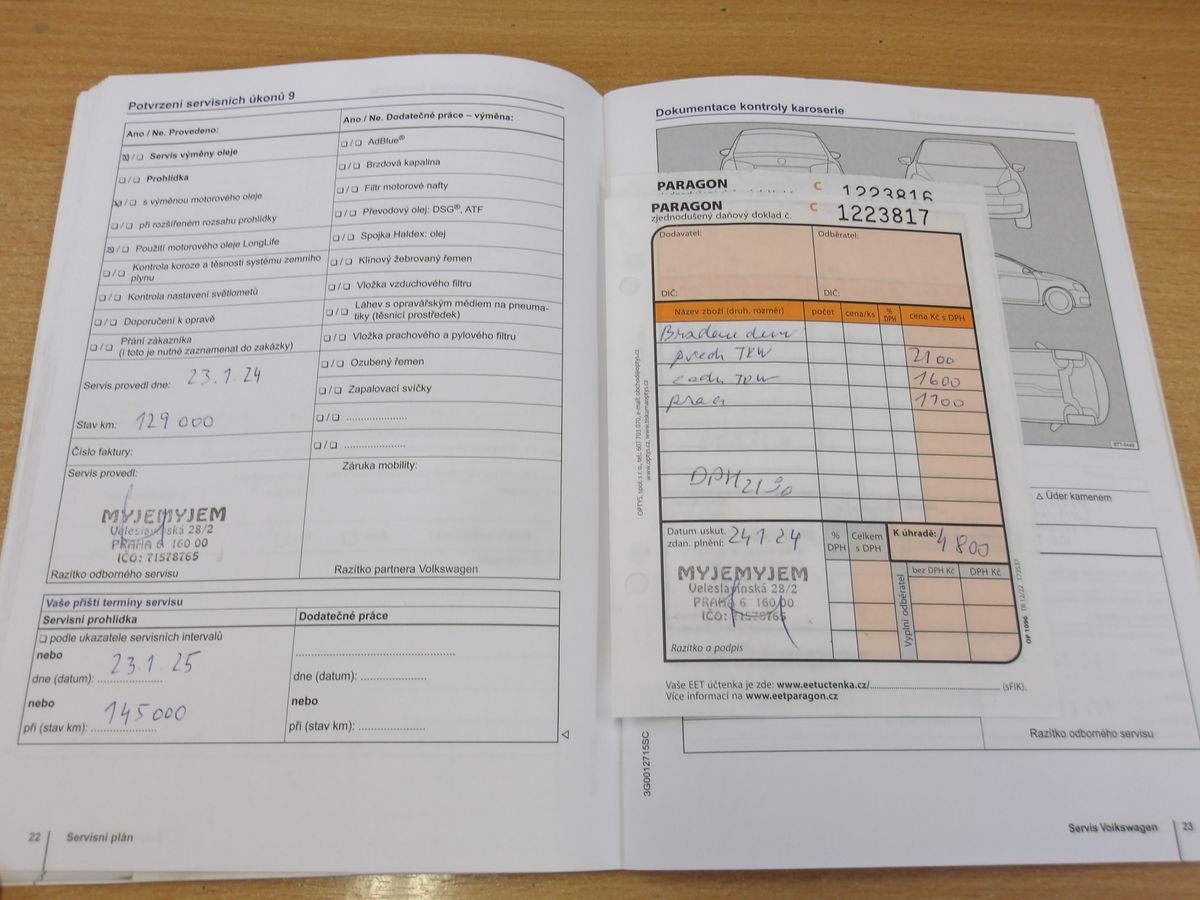 Potvrzení servisních úkonů 9
Ano / Ne. Provedeno:
Servis výměny oleje
Prohlídka
s výměnou motorového oleje
při rozšířeném rozsahu prohlídky
Použití motorového oleje LongLife
Kontrola koroze a těsnosti systému zemního
plynu
Kontrola nastavení světlometů
Doporučení k opravě
Přání zákazníka
(i toto je nutné zaznamenat do zakázky)
Servis provedl dne: 23.1.24
Stav km: 129 000
Číslo faktury:
Servis provedl:
MYJEMYJEM
Veleslavínská 28/2
PRAHA 6 160 00
IČO: 71578765
Razítko odborného servisu
Ano / Ne. Dodatečné práce – výměna:
AdBlue®
Brzdová kapalina
Filtr motorové nafty
Převodový olej: DSG®, ATF
Spojka Haldex: olej
Klínový žebrovaný řemen
Vložka vzduchového filtru
Láhev s opravářským médiem na pneuma-
tiky (těsnicí prostředek)
Vložka prachového a pylového filtru
Ozubený řemen
Zapalovací svíčky
Záruka mobility:
Razítko partnera Volkswagen
Vaše příští termíny servisu
Servisní prohlídka
podle ukazatele servisních intervalů
nebo
dne (datum): 23.1.25
nebo
při (stav km): 145 000
Dodatečné práce
dne (datum):
nebo
při (stav km):
22 Servisní plán
Dokumentace kontroly karoserie
PARAGON C 1223816
PARAGON C 1223817
zjednodušený daňový doklad č.
Dodavatel: Odběratel:
DIČ: DIČ:
Název zboží (druh, rozměr) počet cena/ks % DPH cena Kč s DPH
předn TRW 2100
zadn TRW 1600
1100
DPH 21%
Datum uskut.
zdan. plnění: 24.1.24
% DPH
Celkem s DPH
K úhradě: 4 800
bez DPH Kč DPH Kč
Vyplní odběratel
MYJEMYJEM
Veleslavínská 28/2
PRAHA 6 160 00
IČO: 71578765
Razítko a podpis
OP 1096
Vaše EET účtenka je zde: www.eetuctenka.cz/ (sFIK).
Více informací na www.eetparagon.cz
Úder kamenem
Razítko odborného servisu
3G0012715SC
Servis Volkswagen 23